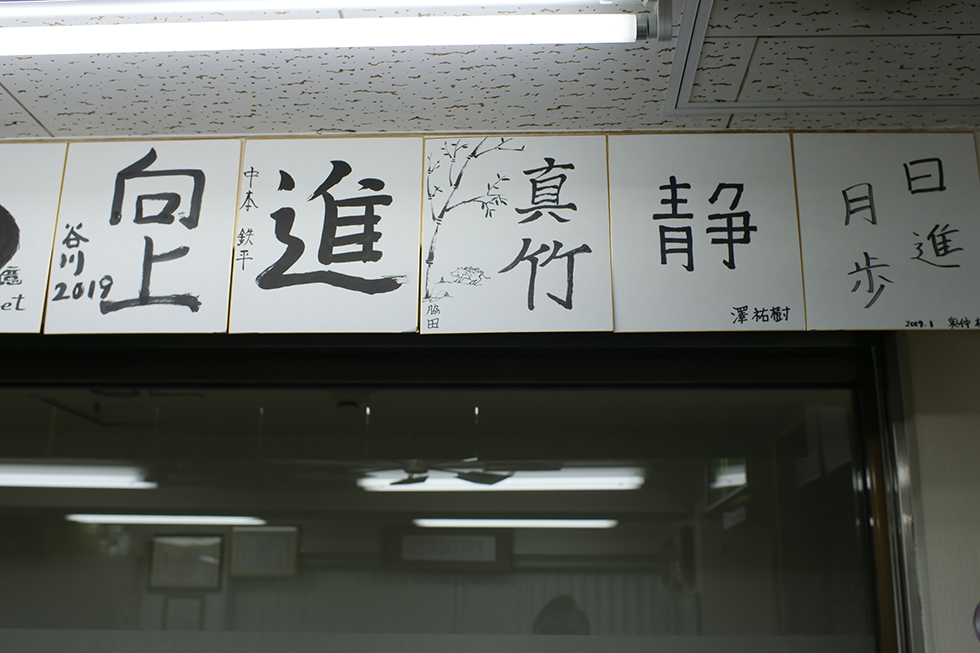 et
向上
谷川
2019
進
中本 鉄平
真竹
脇田
静
澤祐樹
日進
月歩
2019.1 奥仲